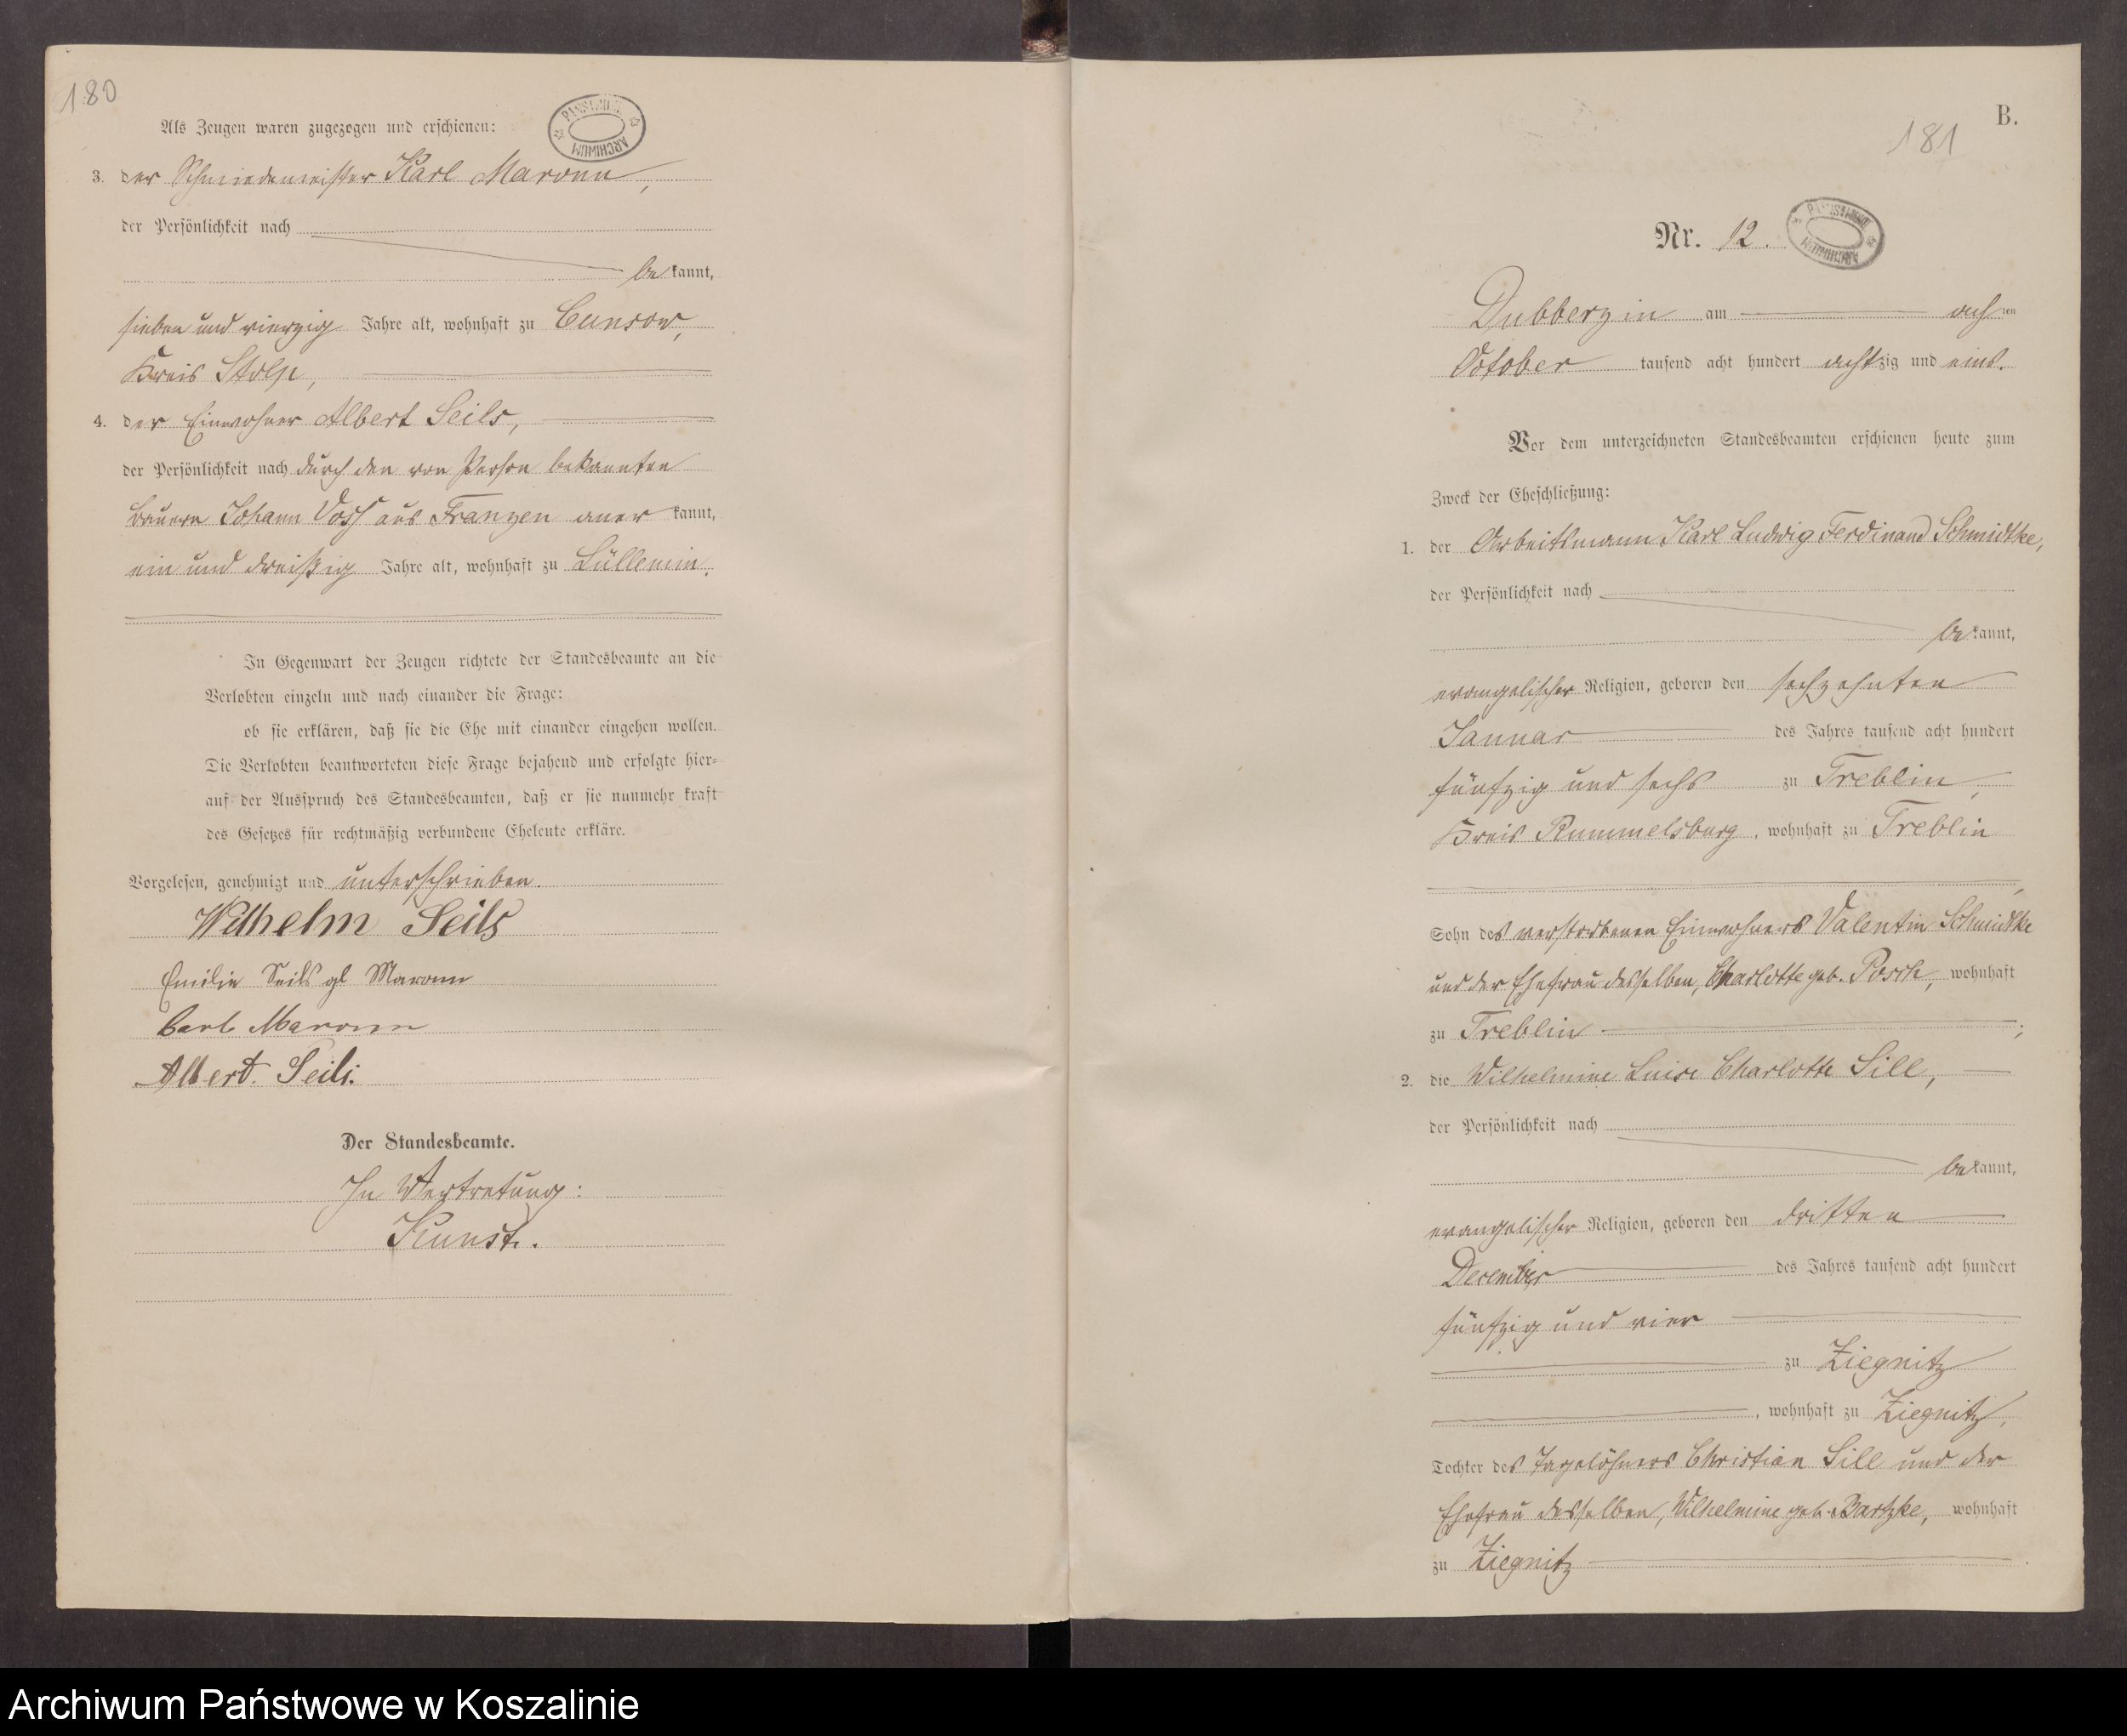 180
Als Zeugen waren zugezogen und erschienen:
PANSTWOWE ARCHIWUM
3. der Schmiedemeister Karl Maronn,
der Persönlichkeit nach
bekannt,
sieben und vierzig Jahre alt, wohnhaft zu Cunsow,
Kreis Stolp,
4. der Einwohner Albert Seils,
der Persönlichkeit nach durch den von Person bekannten
Bauern Johann Voss aus Franzen anerkannt,
ein und dreißig Jahre alt, wohnhaft zu Lüllemin.
In Gegenwart der Zeugen richtete der Standesbeamte an die
Verlobten einzeln und nach einander die Frage:
ob sie erklären, daß sie die Ehe mit einander eingehen wollen.
Die Verlobten beantworteten diese Frage bejahend und erfolgte hier-
auf der Ausspruch des Standesbeamten, daß er sie nunmehr kraft
des Gesetzes für rechtmäßig verbundene Eheleute erkläre.
Vorgelesen, genehmigt und unterschrieben.
Wilhelm Seils
Emilie Seils gb Maronn
Carl Maronn
Albert Seils.
Der Standesbeamte.
In Vertretung:
Kunst.
B.
181
Nr. 12.
PANSTWOWE ARCHIWUM
Dubberzin am achten
October tausend acht hundert achtzig und eins.
Vor dem unterzeichneten Standesbeamten erschienen heute zum
Zweck der Eheschließung:
1. der Arbeitsmann Karl Ludwig Ferdinand Schmidtke,
der Persönlichkeit nach
bekannt,
evangelischer Religion, geboren den sechzehnten
Januar des Jahres tausend acht hundert
fünfzig und sechs zu Treblin,
Kreis Rummelsburg, wohnhaft zu Treblin
Sohn des verstorbenen Einwohners Valentin Schmidtke
und der Ehefrau desselben, Charlotte geb. Posch, wohnhaft
zu Treblin;
2. die Wilhelmine Luise Charlotte Sill,
der Persönlichkeit nach
bekannt,
evangelischer Religion, geboren den dritten
December des Jahres tausend acht hundert
fünfzig und vier
zu Ziegnitz
, wohnhaft zu Ziegnitz,
Tochter des Tagelöhners Christian Sill und der
Ehefrau desselben, Wilhelmine geb. Bartzke, wohnhaft
zu Ziegnitz.
Archiwum Państwowe w Koszalinie